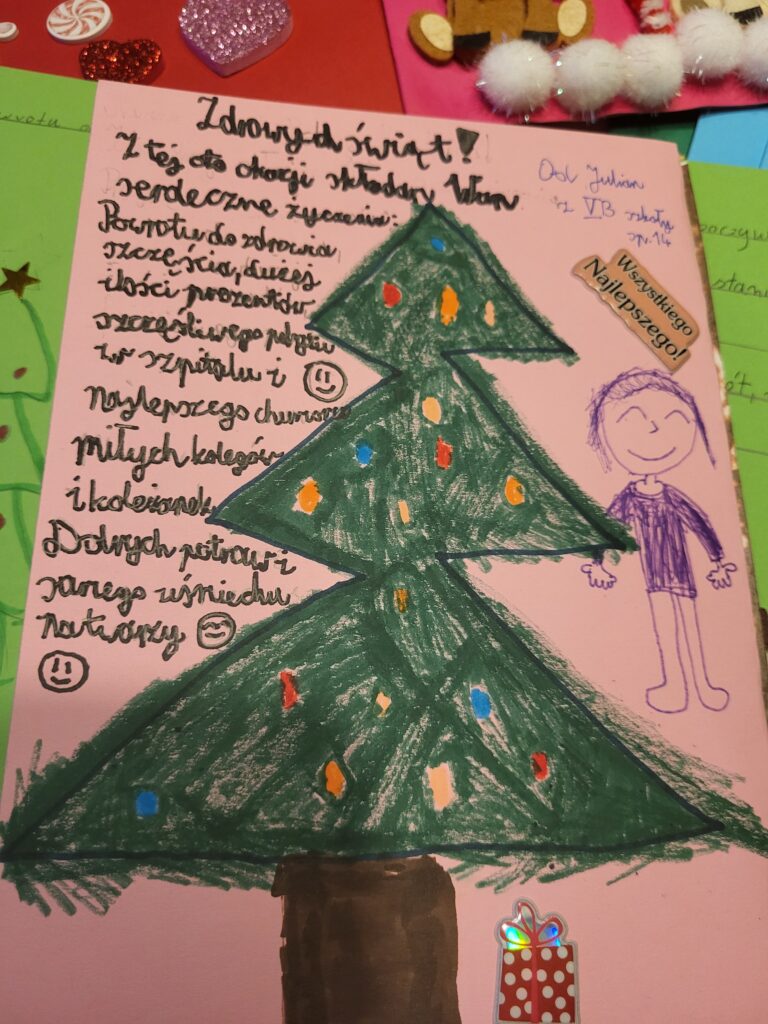 Zdrowych świąt!
Z tej oto okazji składam Wam
serdeczne życzenia:
Powrotu do zdrowia
szczęścia, dużej
ilości prezentów
szczęśliwego pobytu
w szpitalu i
najlepszego humoru
miłych kolegów
i koleżanek
Dobrych potraw i
samego uśmiechu
na twarzy
Od Julian
z VB szkoły
sp. 14
Wszystkiego
Najlepszego!